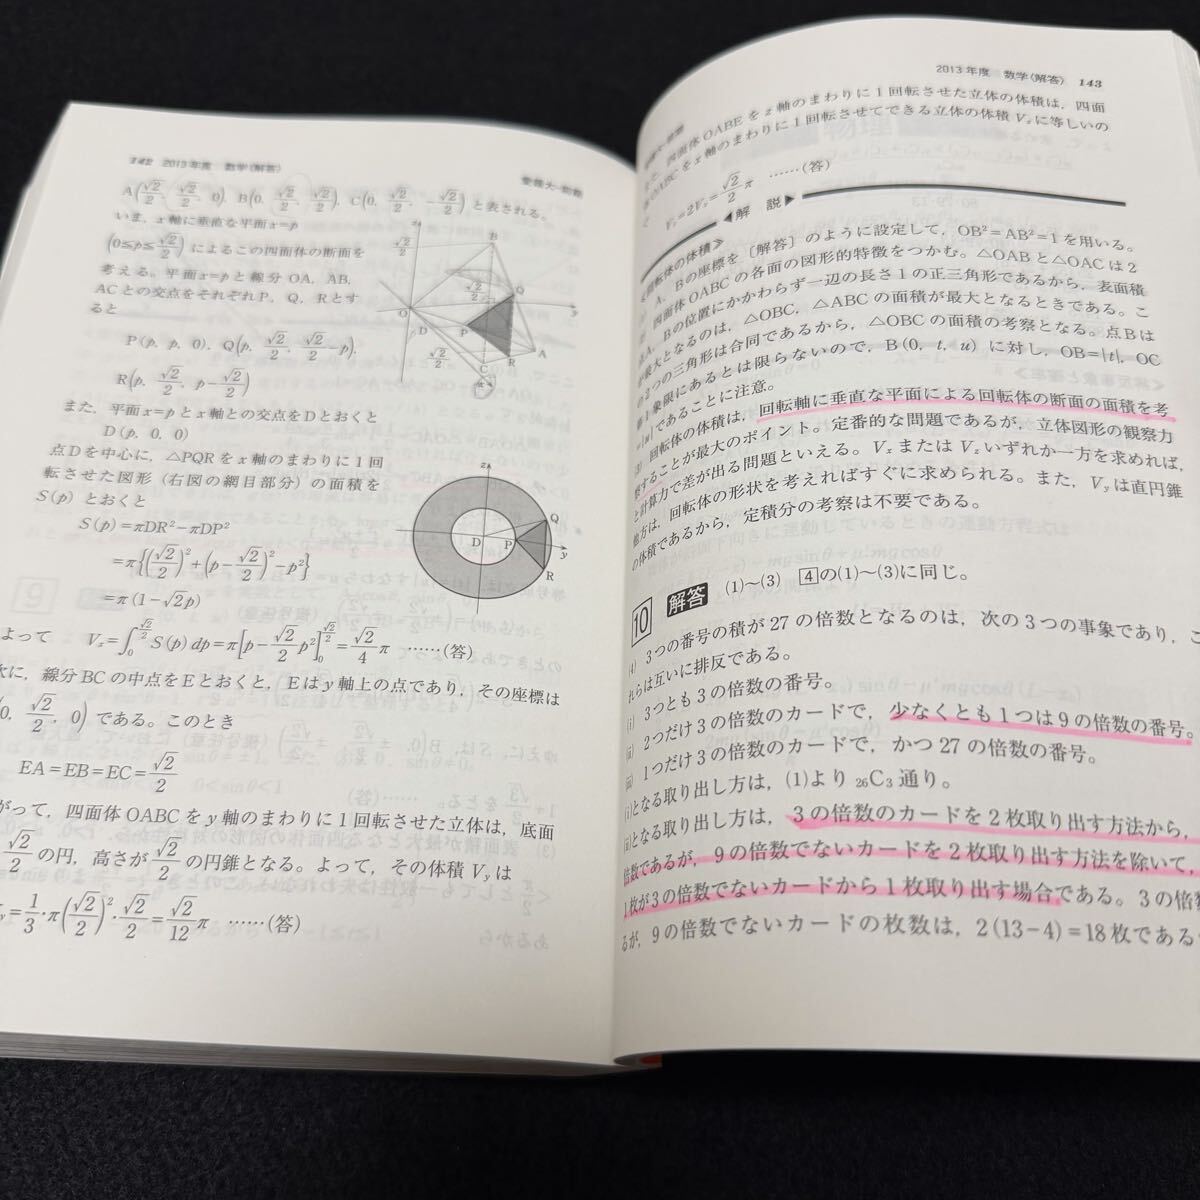 142 2013年度 数学〈解答〉
愛媛大-前期
A(√2/2, √2/2, 0), B(0, √2/2, √2/2), C(0, √2/2, −√2/2) と表される。
いま, x軸に垂直な平面x=p
(0≦p≦√2/2) によるこの四面体の断面を
考える。平面x=pと線分 OA, AB,
ACとの交点をそれぞれP, Q, Rとす
ると
P(p, p, 0), Q(p, √2/2, √2/2−p),
R(p, √2/2, p−√2/2)
また, 平面x=pとx軸との交点をDとおくと
D(p, 0, 0)
点Dを中心に, △PQRをx軸のまわりに1回
転させた図形 (右図の網目部分) の面積を
S(p) とおくと
S(p)=πDR²−πDP²
=π{(√2/2)²+(p−√2/2)²−p²}
=π(1−√2p)
よって Vx=∫₀^(√2/2) S(p)dp=π[p−√2/2 p²]₀^(√2/2)=√2/4 π ……(答)
次に, 線分BCの中点をEとおくと, Eはy軸上の点であり, その座標は
(0, √2/2, 0) である。このとき
EA=EB=EC=√2/2
がって, 四面体OABCをy軸のまわりに1回転させた立体は, 底面
√2/2の円, 高さが√2/2の円錐となる。よって, その体積Vyは
y=1/3・π(√2/2)²・√2/2=√2/12 π ……(答)
z
B
√2/2
Q
O
D
P
R
A
C
y
x
z
Q
D
P
R
y
2013年度 数学〈解答〉 143
四面体OABEをz軸のまわりに1回転させた立体の体積は, 四面
OABCをx軸のまわりに1回転させてできる立体の体積Vxに等しいの
Vz=2Vx=√2/2 π ……(答)
◀解 説▶
回転体の体積≫
A, Bの座標を〔解答〕のように設定して, OB²=AB²=1を用いる。
四面体OABCの各面の図形的特徴をつかむ。△OABと△OACは2
A, Bの位置にかかわらず一辺の長さ1の正三角形であるから, 表面積
最大となるのは, △OBC, △ABCの面積が最大となるときである。こ
の2つの三角形は合同であるから, △OBCの面積の考察となる。点Bは
第1象限にあるとは限らないので, B(0, t, u) に対し, OB=|t|, OC
=|u|であることに注意。
(3) 回転体の体積は, 回転軸に垂直な平面による回転体の断面の面積を考
察することが最大のポイント。定番的な問題であるが, 立体図形の観察力
と計算力で差が出る問題といえる。VxまたはVzいずれか一方を求めれば,
他方は, 回転体の形状を考えればすぐに求められる。また, Vyは直円錐
の体積であるから, 定積分の考察は不要である。
10 解答 (1)〜(3) 4の(1)〜(3)に同じ。
(4) 3つの番号の積が27の倍数となるのは, 次の3つの事象であり, こ
れらは互いに排反である。
(i) 3つとも3の倍数の番号。
(ii) 2つだけ3の倍数のカードで, 少なくとも1つは9の倍数の番号。
(iii) 1つだけ3の倍数のカードで, かつ27の倍数の番号。
(i)となる取り出し方は, (1)より ₂₆C₃通り。
(ii)となる取り出し方は, 3の倍数のカードを2枚取り出す方法から,
倍数であるが, 9の倍数でないカードを2枚取り出す方法を除いて,
1枚が3の倍数でないカードから1枚取り出す場合である。3の倍
るが, 9の倍数でないカードの枚数は, 2(13−4)=18枚である